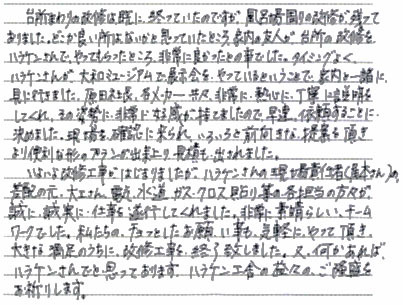 台所まわりの改修は既に終っていたのですが風呂場周りの改修が残って
おりました。どこか良い所はないかと思っていたところ家内の友人が台所の改修を
ハラケンさんでやってもらったところ非常に良かったとの事でした。タイミングよく
ハラケンさんが大和ミュージアムで展示会をやっているということで家内と一緒に
見に行きました。原田社長、各メーカー共々、非常に熱心に丁寧に説明を
してくれ、その姿勢に非常に好感が持てましたので早速、依頼することに
決めました。現場を確認に来られ、いろいろと前向きな提案も頂き
より便利な形のプランが出来上り見積も出されました。
いよいよ改修工事がはじまりましたが、ハラケンさんの現場責任者の
差配の元、大工さん、電気、水道、ガス、クロス貼り等の各担当の方々が
誠に誠実に仕事を遂行してくれました。非常に素晴らしいチーム
ワークでした。私たちのちょっとしたお願い事も気軽にやって頂き
大きな満足のうちに改修工事を終了致しました。又、何かあれば、
ハラケンさんでと思っております。ハラケン工舎の益々のご隆盛を
お祈りします。